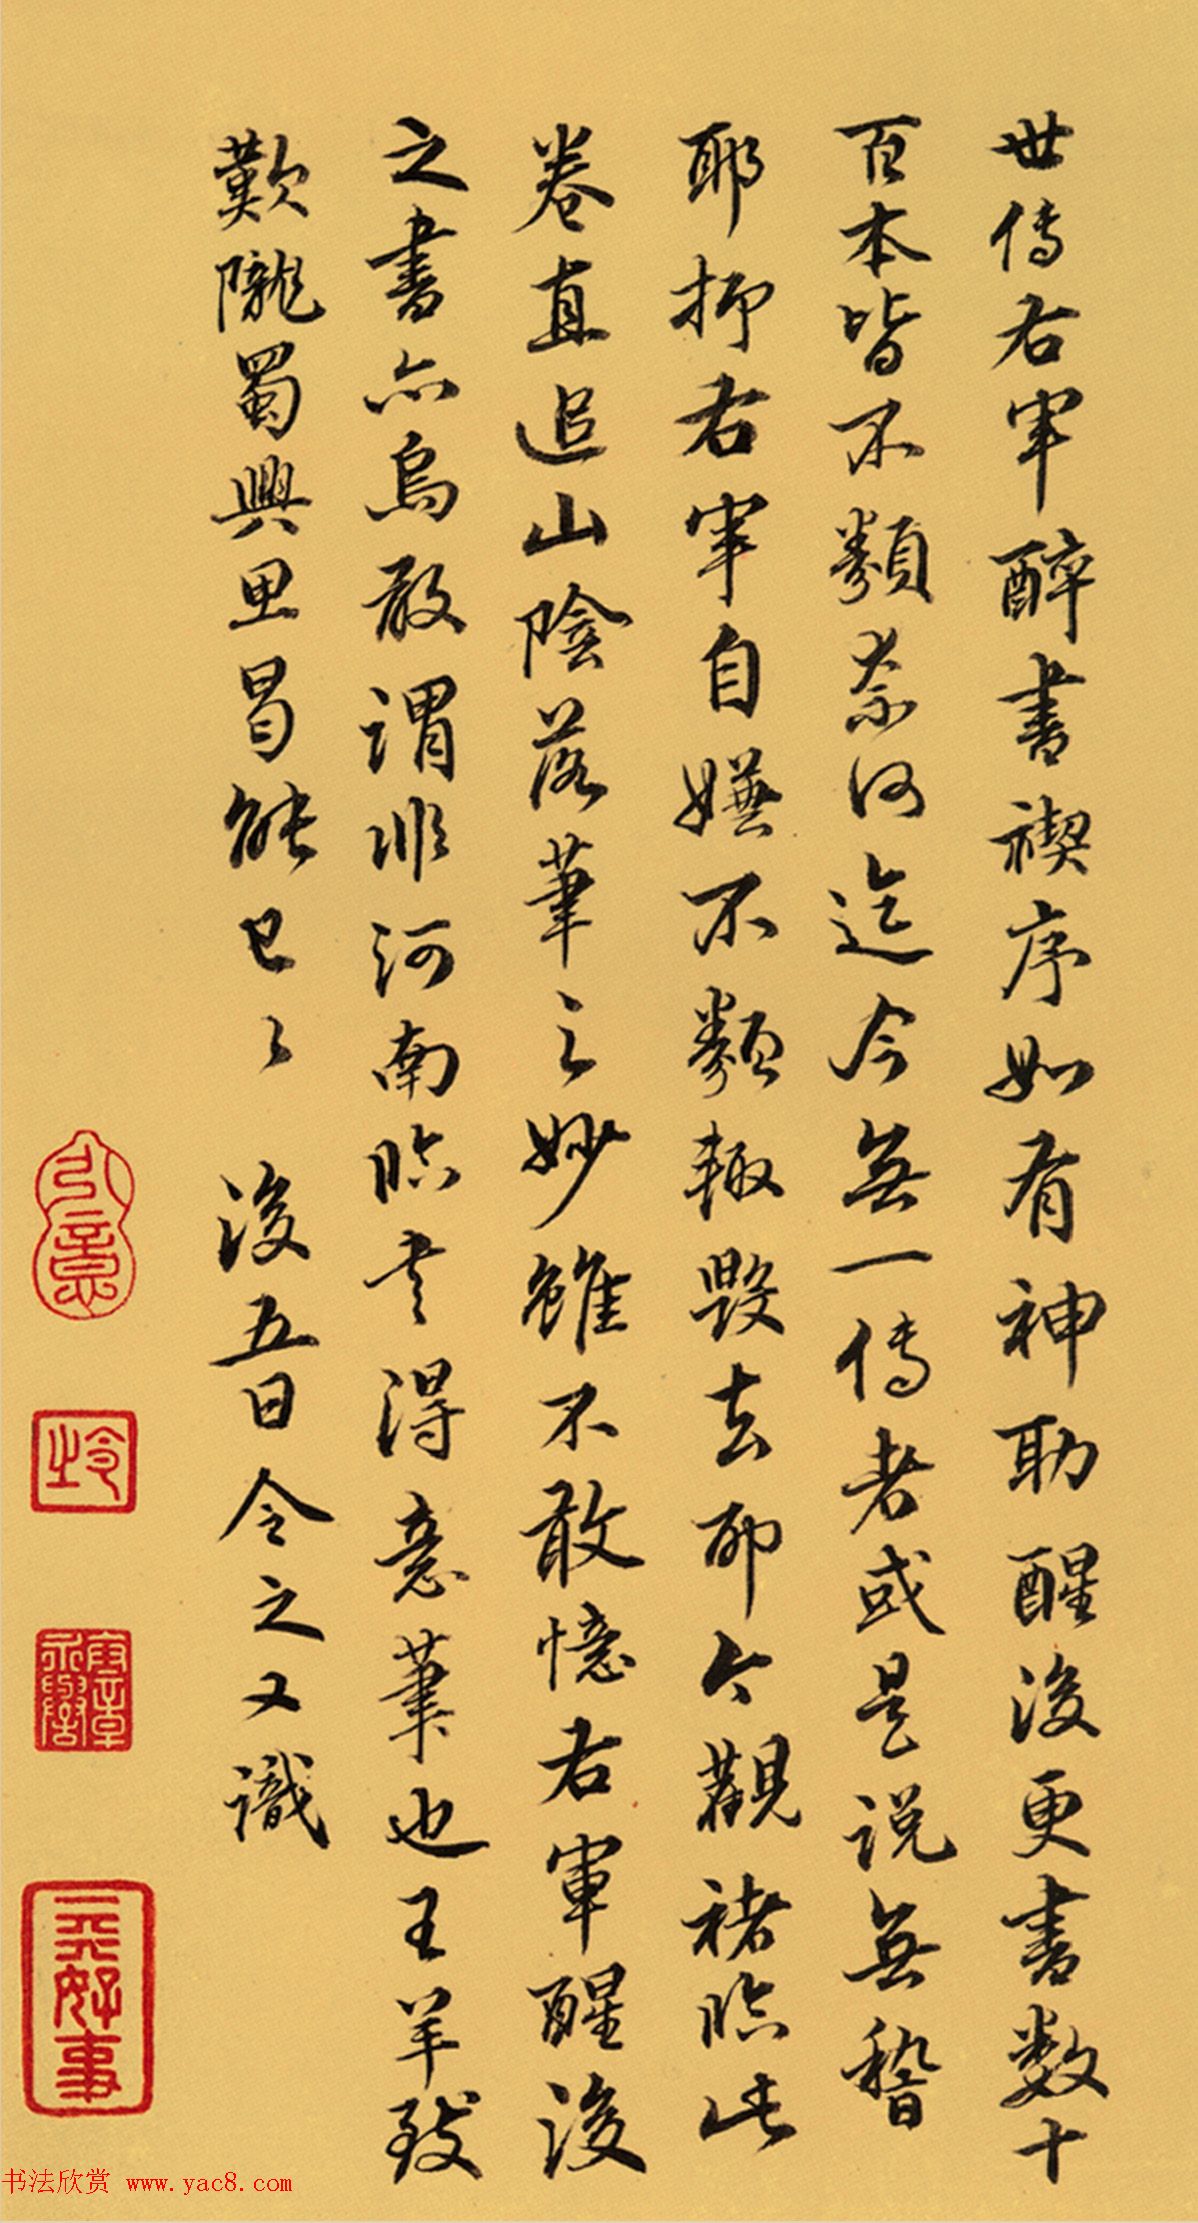 世傳右軍醉書禊序如有神助醒後更書數十
百本皆不類奈何迄今無一傳者或是說無稽
耶抑右軍自嫌不類輒毀去耶今觀褚臨此
卷直追山陰落筆之妙雖不敢憶右軍醒後
之書亦烏敢謂非河南臨書得意筆也王羊致
歎隴蜀興思曷能已已 後五日令之又識
書法欣賞 www.yac8.com